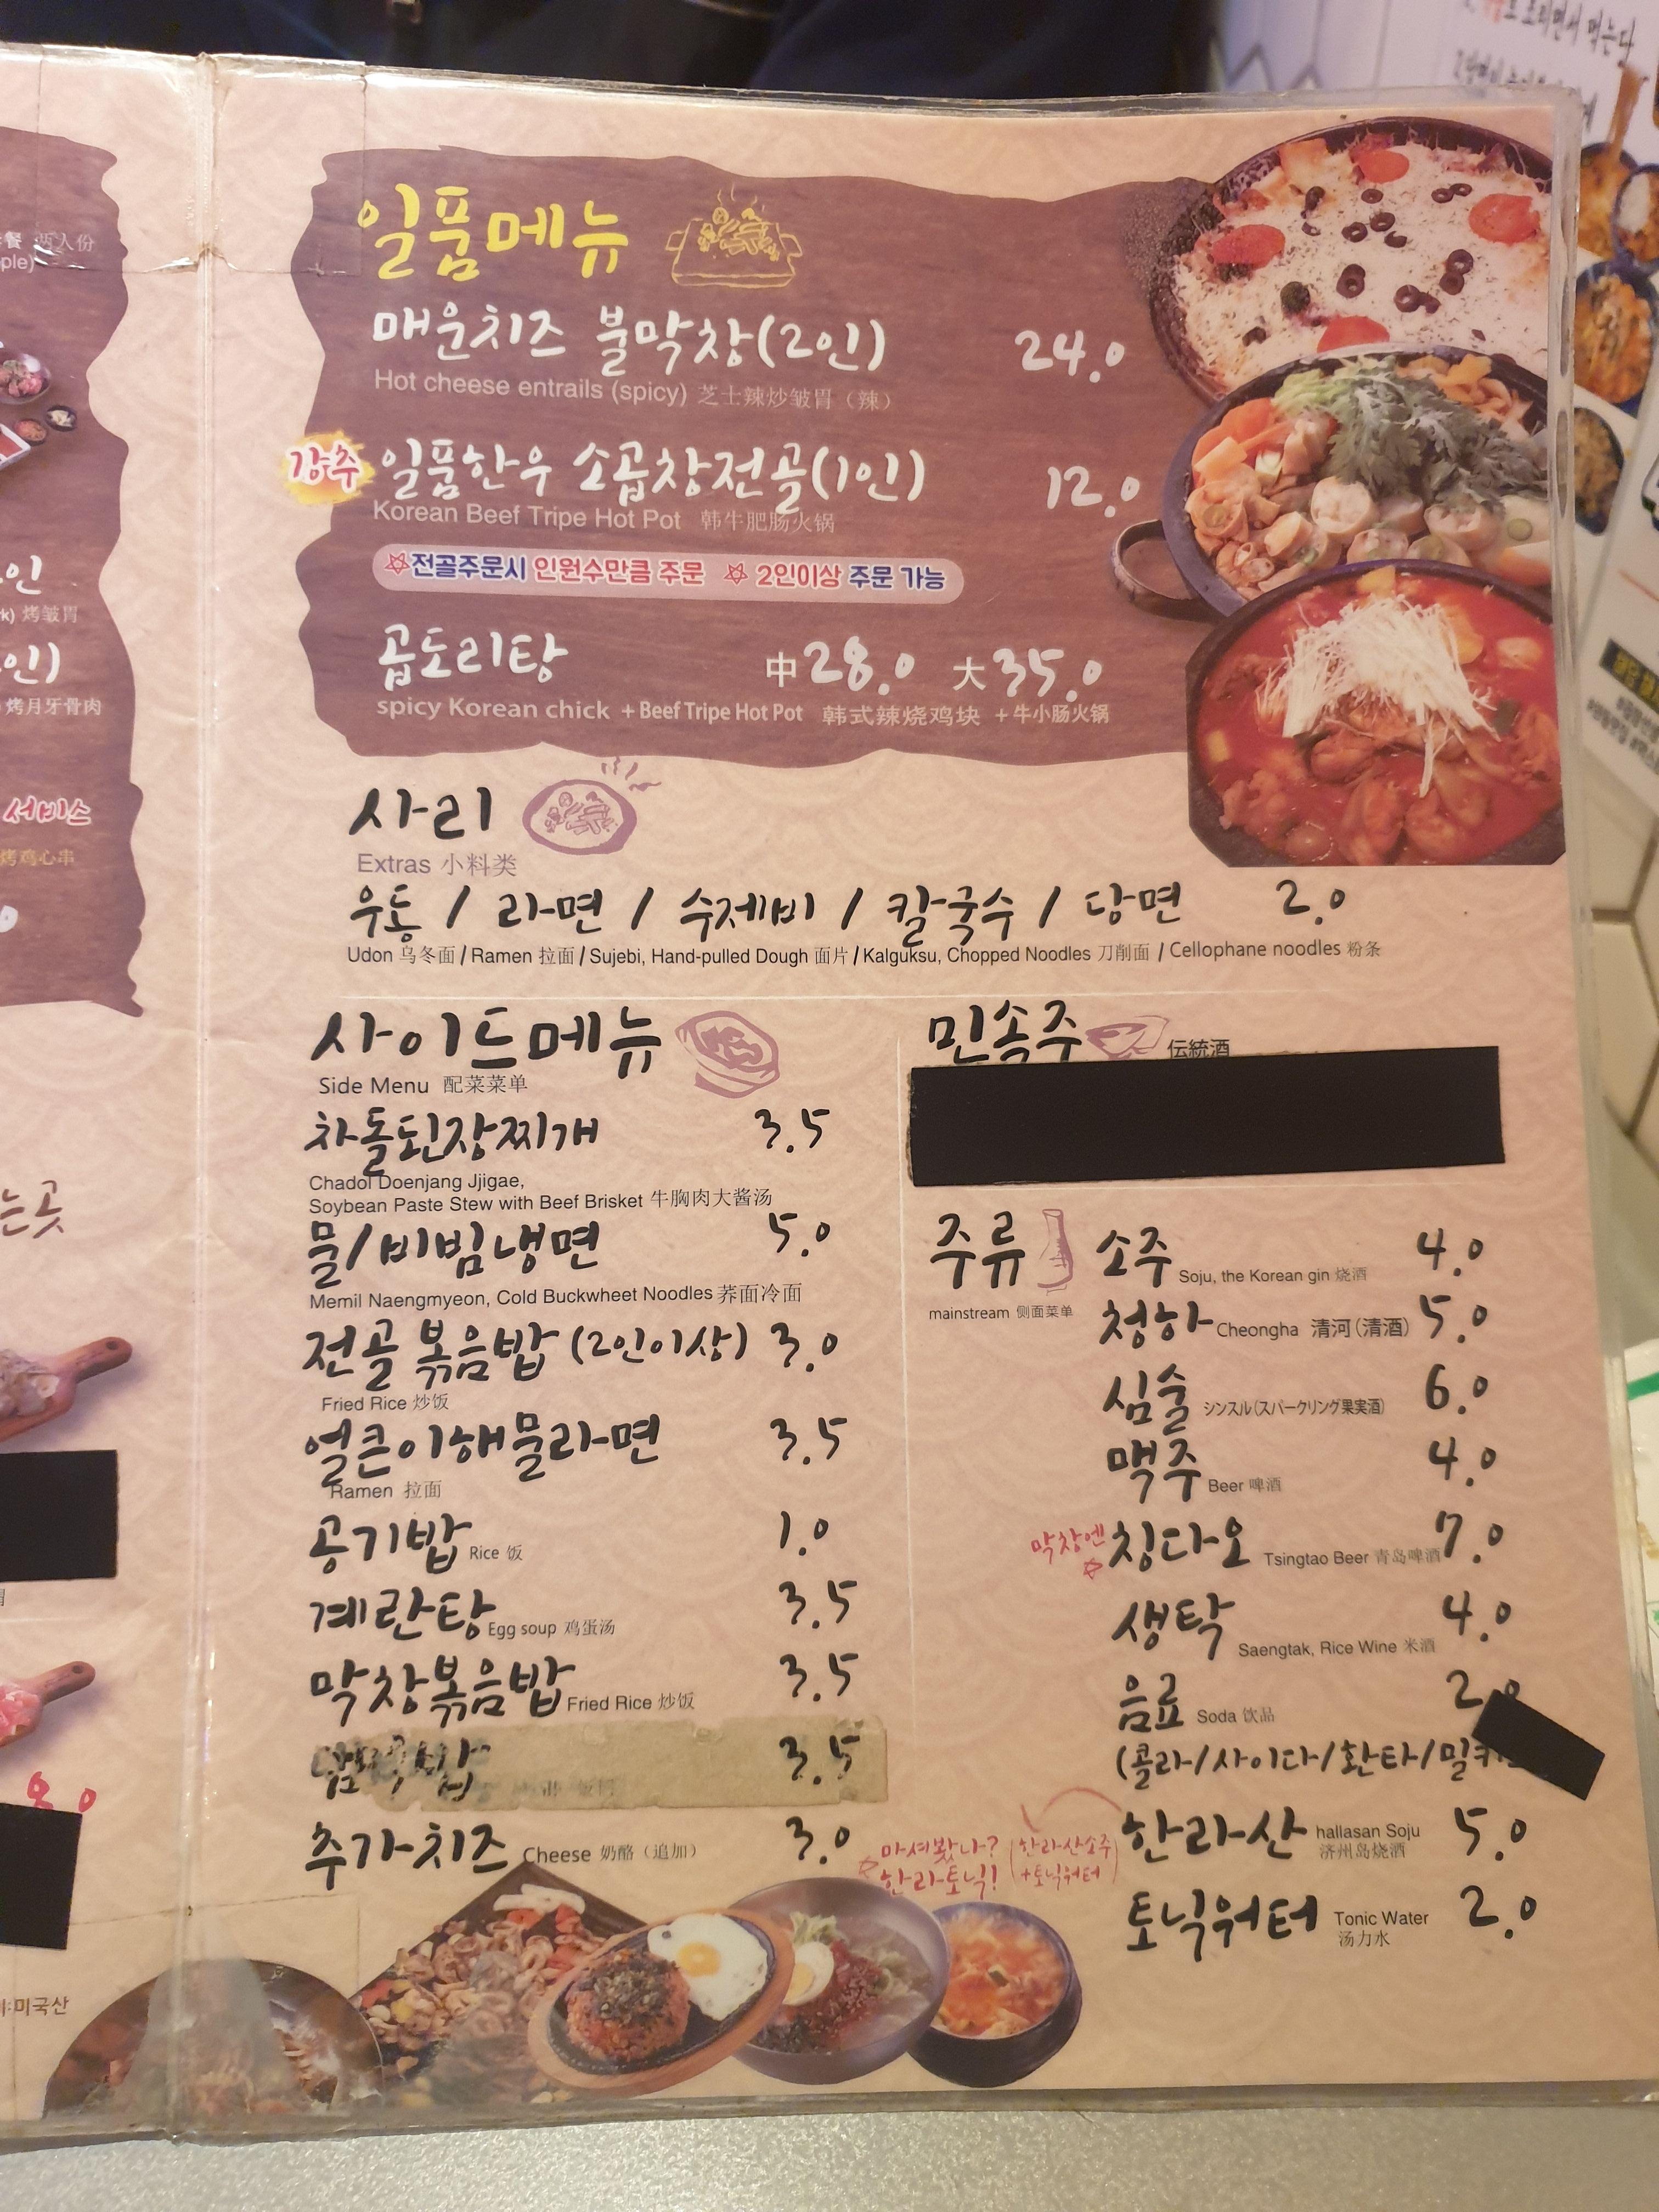 일품메뉴
매운치즈 불막창(2인) 24.0
Hot cheese entrails (spicy) 芝士辣炒皱胃（辣）
강추 일품한우 소곱창전골(1인) 12.0
Korean Beef Tripe Hot Pot 韩牛肥肠火锅
전골주문시 인원수만큼 주문 2인이상 주문 가능
곱도리탕 中28.0 大35.0
spicy Korean chick +Beef Tripe Hot Pot 韩式辣烧鸡块 +牛小肠火锅
사리
Extras 小料类
우동 / 라면 / 수제비 / 칼국수 / 당면 2.0
Udon 乌冬面/Ramen 拉面/Sujebi, Hand-pulled Dough 面片/Kalguksu, Chopped Noodles 刀削面/Cellophane noodles 粉条
사이드메뉴
Side Menu 配菜菜单
차돌된장찌개 3.5
Chadol Doenjang Jjigae,
Soybean Paste Stew with Beef Brisket 牛胸肉大酱汤
물/비빔냉면 5.0
Memil Naengmyeon, Cold Buckwheet Noodles 荞面冷面
전골 볶음밥 (2인이상) 3.0
Fried Rice 炒饭
얼큰이해물라면 3.5
Ramen 拉面
공기밥 Rice 饭 1.0
계란탕 Egg soup 鸡蛋汤 3.5
막창볶음밥 Fried Rice 炒饭 3.5
3.5
추가치즈 Cheese 奶酪（追加） 3.0
민속주 伝統酒
주류
mainstream 侧面菜单
소주 Soju, the Korean gin 烧酒 4.0
청하 Cheongha 清河(清酒) 5.0
심술 シンスル(スパークリング果実酒) 6.0
맥주 Beer 啤酒 4.0
막창엔 칭다오 Tsingtao Beer 青岛啤酒 7.0
생탁 Saengtak, Rice Wine 米酒 4.0
음료 Soda 饮品 2.0
(콜라/사이다/환타/밀키
한라산 hallasan Soju 济州岛烧酒 5.0
마셔봤나? 한라토닉! (한라산소주+토닉워터)
토닉워터 Tonic Water 汤力水 2.0
两人份
ple)
인
烤皱胃
인)
烤月牙骨肉
서비스
烤鸡心串
는곳
:미국산